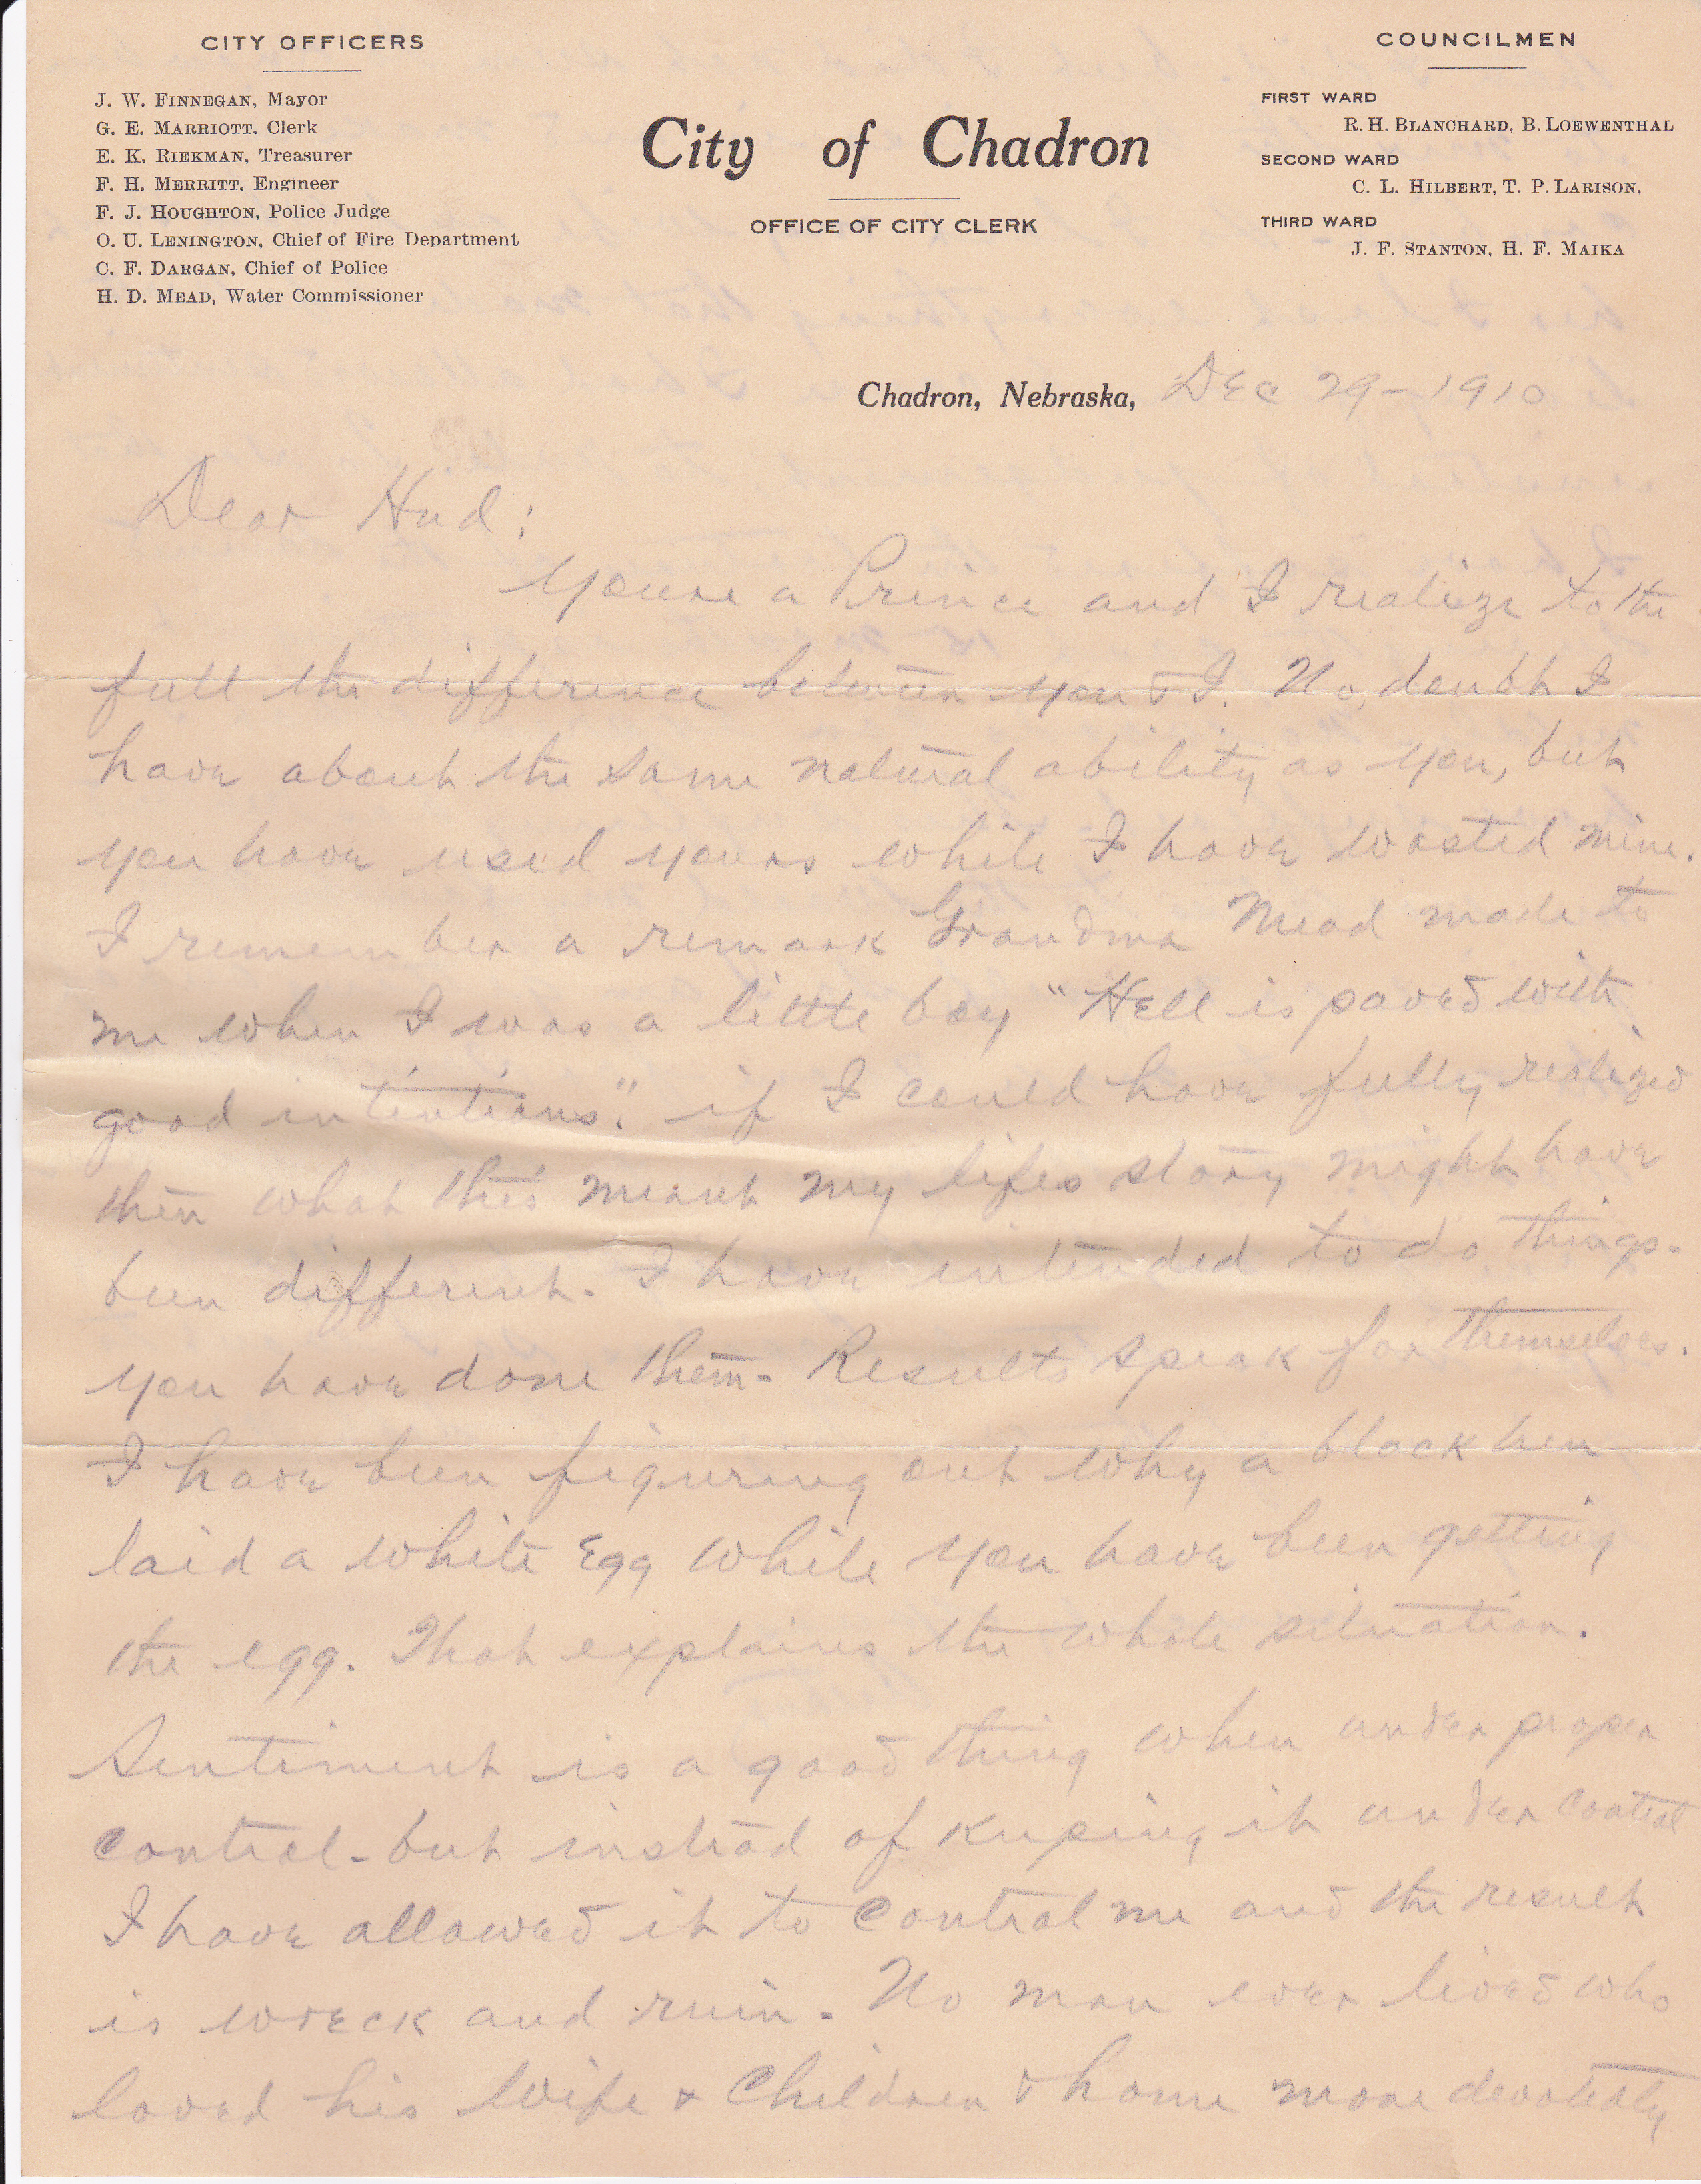 CITY OFFICERS
J. W. FINNEGAN, Mayor
G. E. MARRIOTT. Clerk
E. K. RIEKMAN, Treasurer
F. H. MERRITT. Engineer
F. J. HOUGHTON, Police Judge
O. U. LENINGTON, Chief of Fire Department
C. F. DARGAN, Chief of Police
H. D. MEAD, Water Commissioner
City of Chadron
OFFICE OF CITY CLERK
COUNCILMEN
FIRST WARD
R. H. BLANCHARD, B. LOEWENTHAL
SECOND WARD
C. L. HILBERT, T. P. LARISON.
THIRD WARD
J. F. STANTON, H. F. MAIKA
Chadron, Nebraska, Dec 29-1910
Dear Hud:
Youre a Prince and I realize to the
full the difference between you & I. No doubt I
have about the same natural ability as you, but
you have used yours while I have wasted mine.
I remember a remark Grandma Mead made to
me when I was a little boy "Hell is paved with
good intentions". if I could have fully realized
then what this meant my lifes story might have
been different. I have intended to do things-
you have done them- Results speak for themselves.
I have been figuring out why a black hen
laid a white egg while you have been getting
the egg. That explains the whole situation.
Sentiment is a good thing when under proper
control-but instead of keeping it under control
I have allowed it to control me and the result
is wreck and ruin. No man ever lived who
loved his Wife & Children & home more devotedly